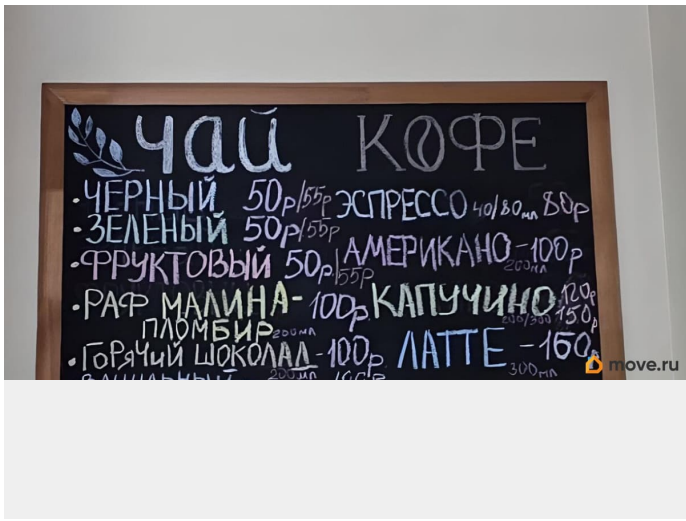 чай КОФЕ
·ЧЕРНЫЙ 50р/55р
·ЗЕЛЕНЫЙ 50р/55р
·ФРУКТОВЫЙ 50р/55р
·РАФ МАЛИНА- 100р
ПЛОМБИР 200мл
·ГОРЯЧИЙ ШОКОЛАД-100р
200мл
ЭСПРЕССО 40/80мл 80р
АМЕРИКАНО-100р
200мл
КАПУЧИНО 120р
200/300 150р
ЛАТТЕ -160р
300мл
move.ru